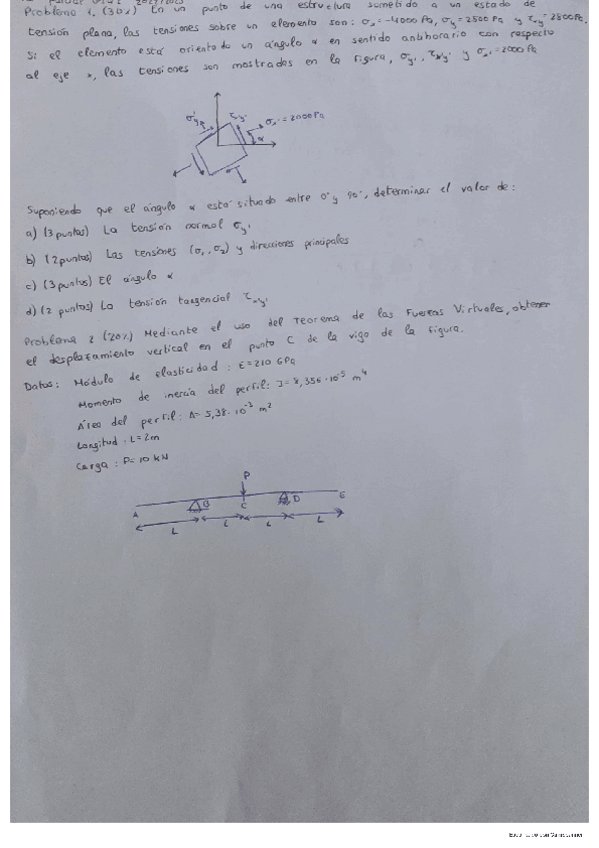 Problema 1. (30%) En un punto de una estructura sometido a un estado de
tensión plana, las tensiones sobre un elemento son: σx = -4000 Pa, σy = 2500 Pa y τxy = 2800 Pa.
Si el elemento está orientado un ángulo α en sentido antihorario con respecto
al eje x, las tensiones son mostradas en la figura, σy', τx'y' y σx' = 2000 Pa
σy'
τx'y'
σx' = 2000 Pa
α
Suponiendo que el ángulo α está situado entre 0° y 90°, determinar el valor de:
a) (3 puntos) La tensión normal σy'
b) (2 puntos) Las tensiones (σ1, σ2) y direcciones principales
c) (3 puntos) El ángulo α
d) (2 puntos) La tensión tangencial τx'y'
Problema 2 (20%) Mediante el uso del Teorema de las Fuerzas Virtuales, obtener
el desplazamiento vertical en el punto C de la viga de la figura.
Datos: Módulo de elasticidad: E = 210 GPa
Momento de inercia del perfil: I = 8,356·10⁻⁵ m⁴
Área del perfil: A = 5,38·10⁻³ m²
Longitud: L = 2m
Carga: P = 10 kN
P
A B C D E
L L L L